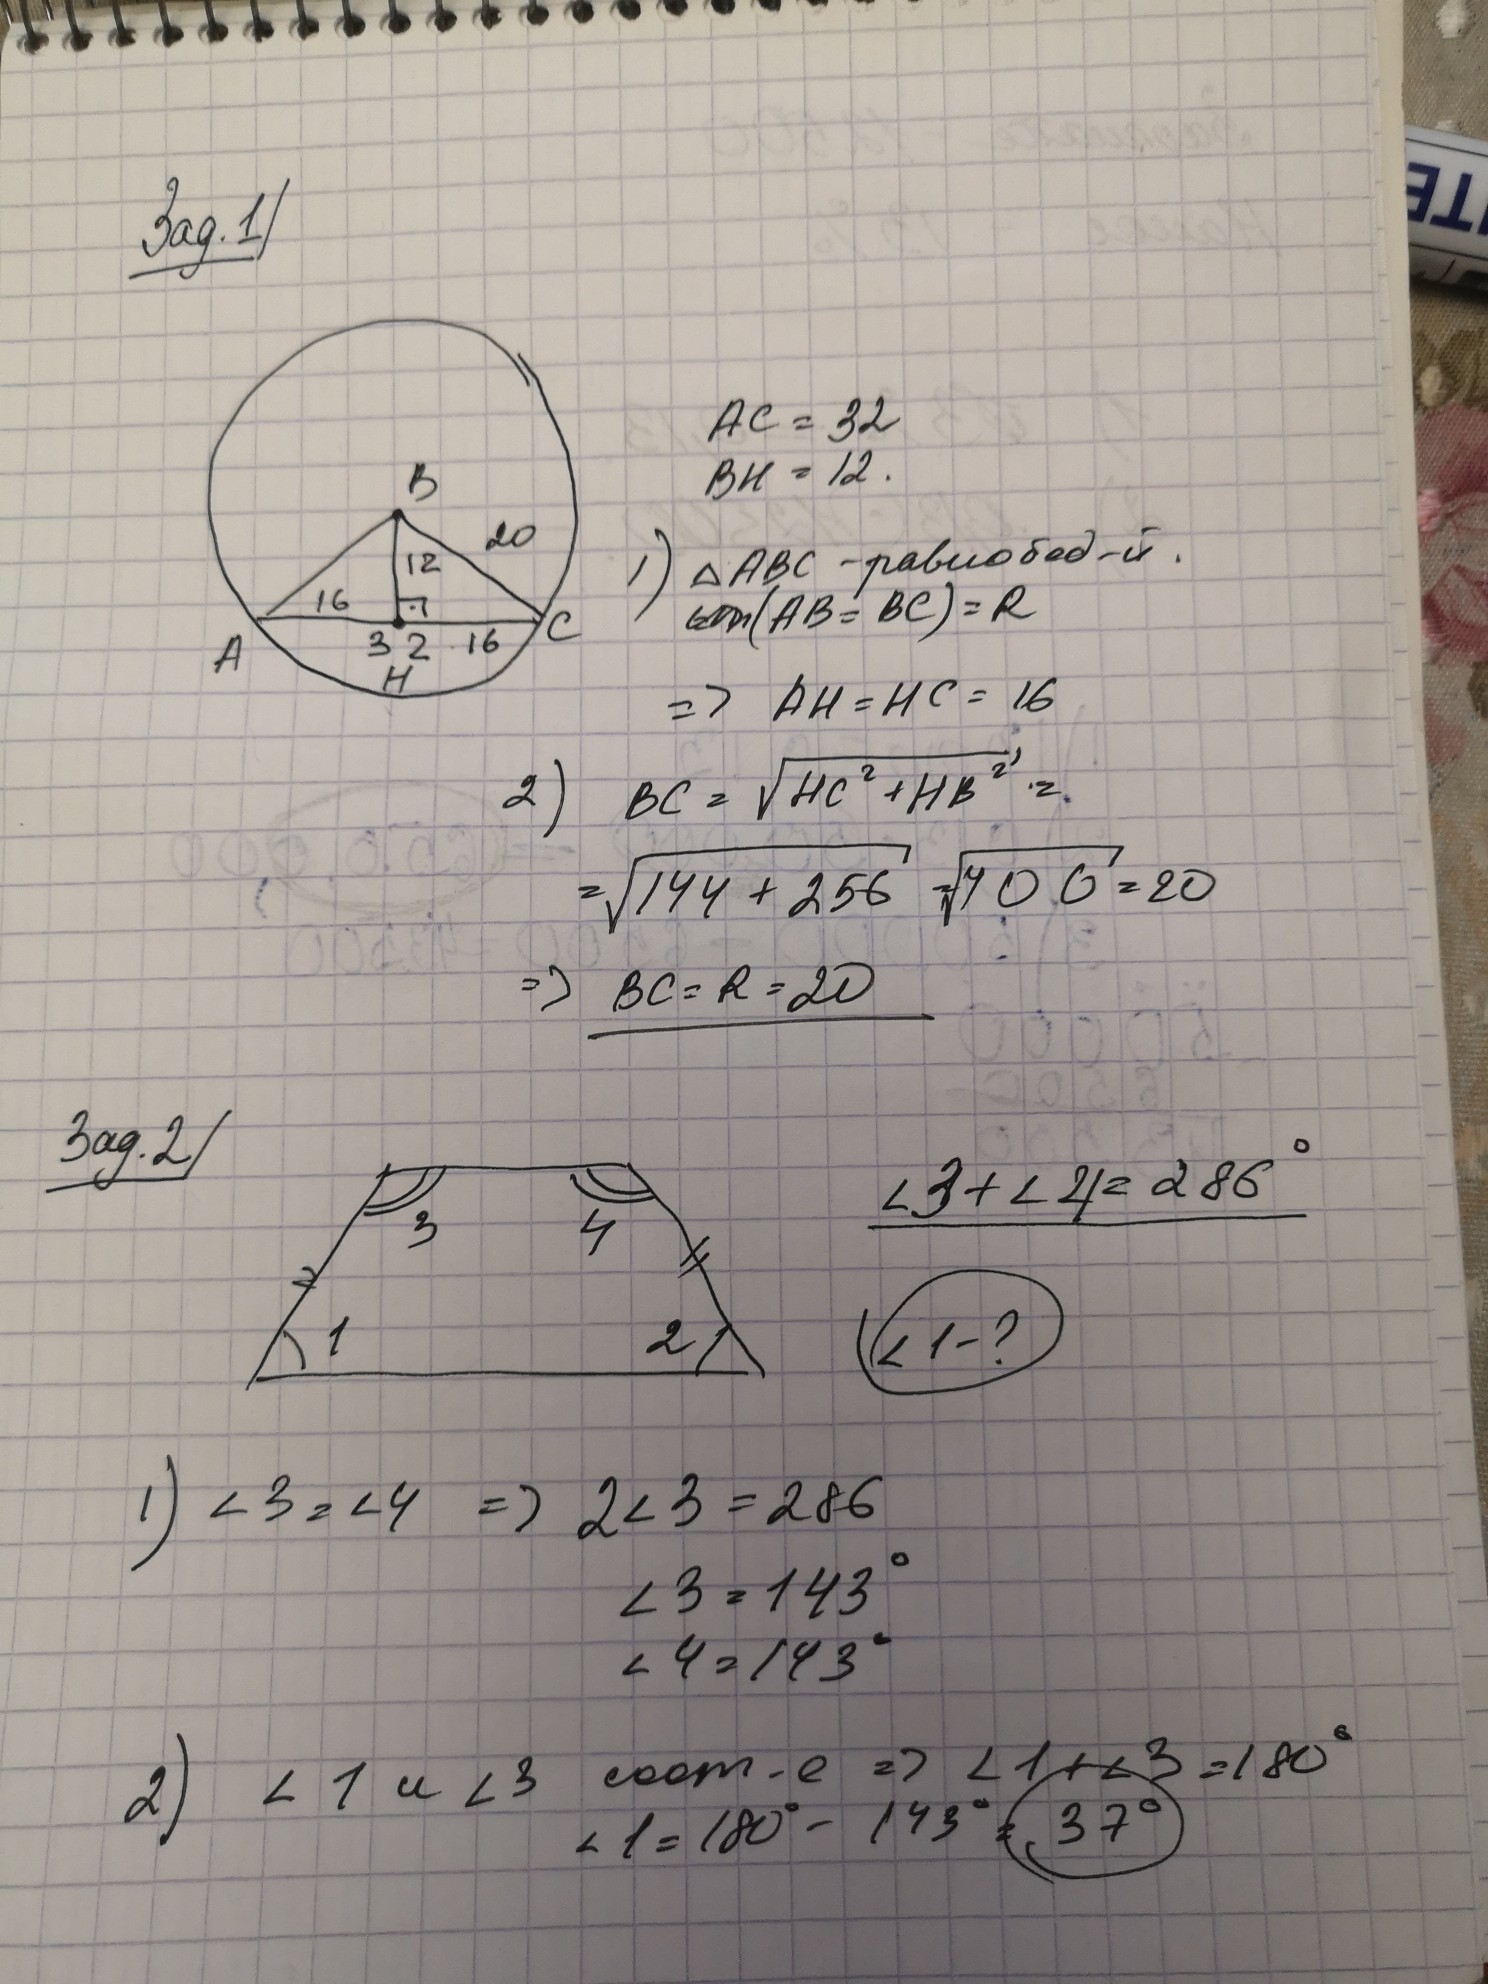 Зад. 1/
B
20
12
16
A
32
16
C
H
AC = 32
BH = 12.
1) △ABC - равнобед-й.
(AB = BC) = R
=> AH = HC = 16
2) BC = √HC² + HB² =
= √144 + 256 = √400 = 20
=> BC = R = 20
Зад. 2/
3
4
1
2
∠3 + ∠4 = 286°
∠1 - ?
1) ∠3 = ∠4 => 2∠3 = 286
∠3 = 143°
∠4 = 143°
2) ∠1 и ∠3 соот-е => ∠1 + ∠3 = 180°
∠1 = 180° - 143° = 37°